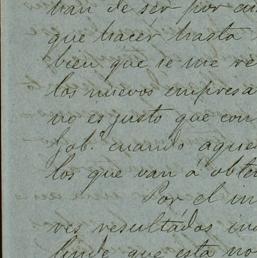 han de ser por cu
que hacer hasta
bien que se me re
los nuevos empresa
no es justo que con
Gob.º cuando aques
los que van á obte
Por el in
ves resultados in
linde que esta no